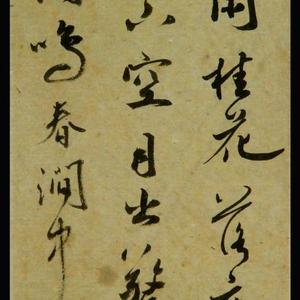 桂花落
山空月出驚
鳴春澗中